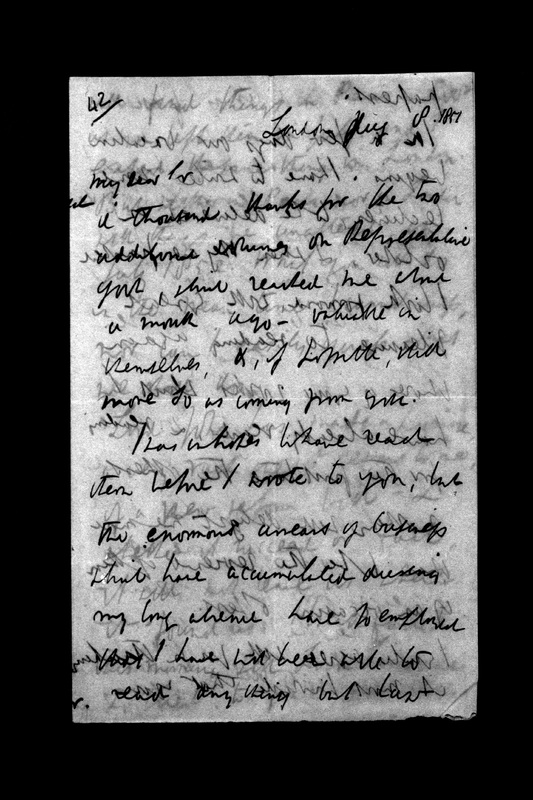 42/
London 8. 1851
My dear Sr
a thousand thanks for the two
additional volumes, on Representative
Govt, which reached me about
a month ago – valuable in
themselves, &, if possible, still
more so as coming from you.
I was in hopes to have read
them before I wrote to you, but
the enormous arrears of business
which have accumulated during
my long absence have so employed
that I have not been able to
read any thing but last